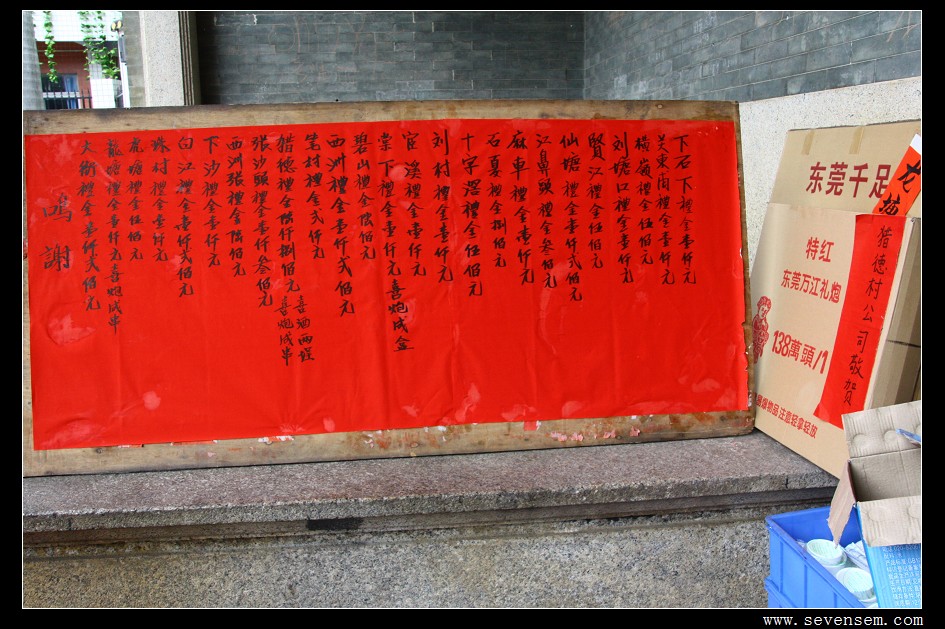 下石下禮金壹仟元
吴東南禮金伍佰元
橫嶺禮金伍佰元
刘塘口禮金壹仟元
賢江禮金伍佰元
仙塘禮金壹仟弍佰元
江鼻頭禮金叁佰元
麻車禮金壹仟元
石夏禮金捌佰元
十字滘禮金伍佰元
刘村禮金壹仟元
宦溪禮金壹仟元
棠下禮金壹仟元喜炮成盒
碧山禮金陸佰元
西洲禮金壹仟弍佰元
笔村禮金弍仟元
喜酒兩埕
猎德禮金陸仟捌佰元
喜炮成串
張沙頭禮金壹仟叁佰元
西洲張禮金陸佰元
下沙禮金壹仟元
白江禮金壹仟弍佰元
珠村禮金壹仟元
龍塘禮金伍佰元
龍塘禮金壹仟元喜炮成串
大街禮金壹仟弍佰元
鸣謝
东莞千足
花
特红
东莞万江礼炮
138萬頭/1
爆物品注意轻拿轻放
猎德村公司敬贺
www.sevensem.com